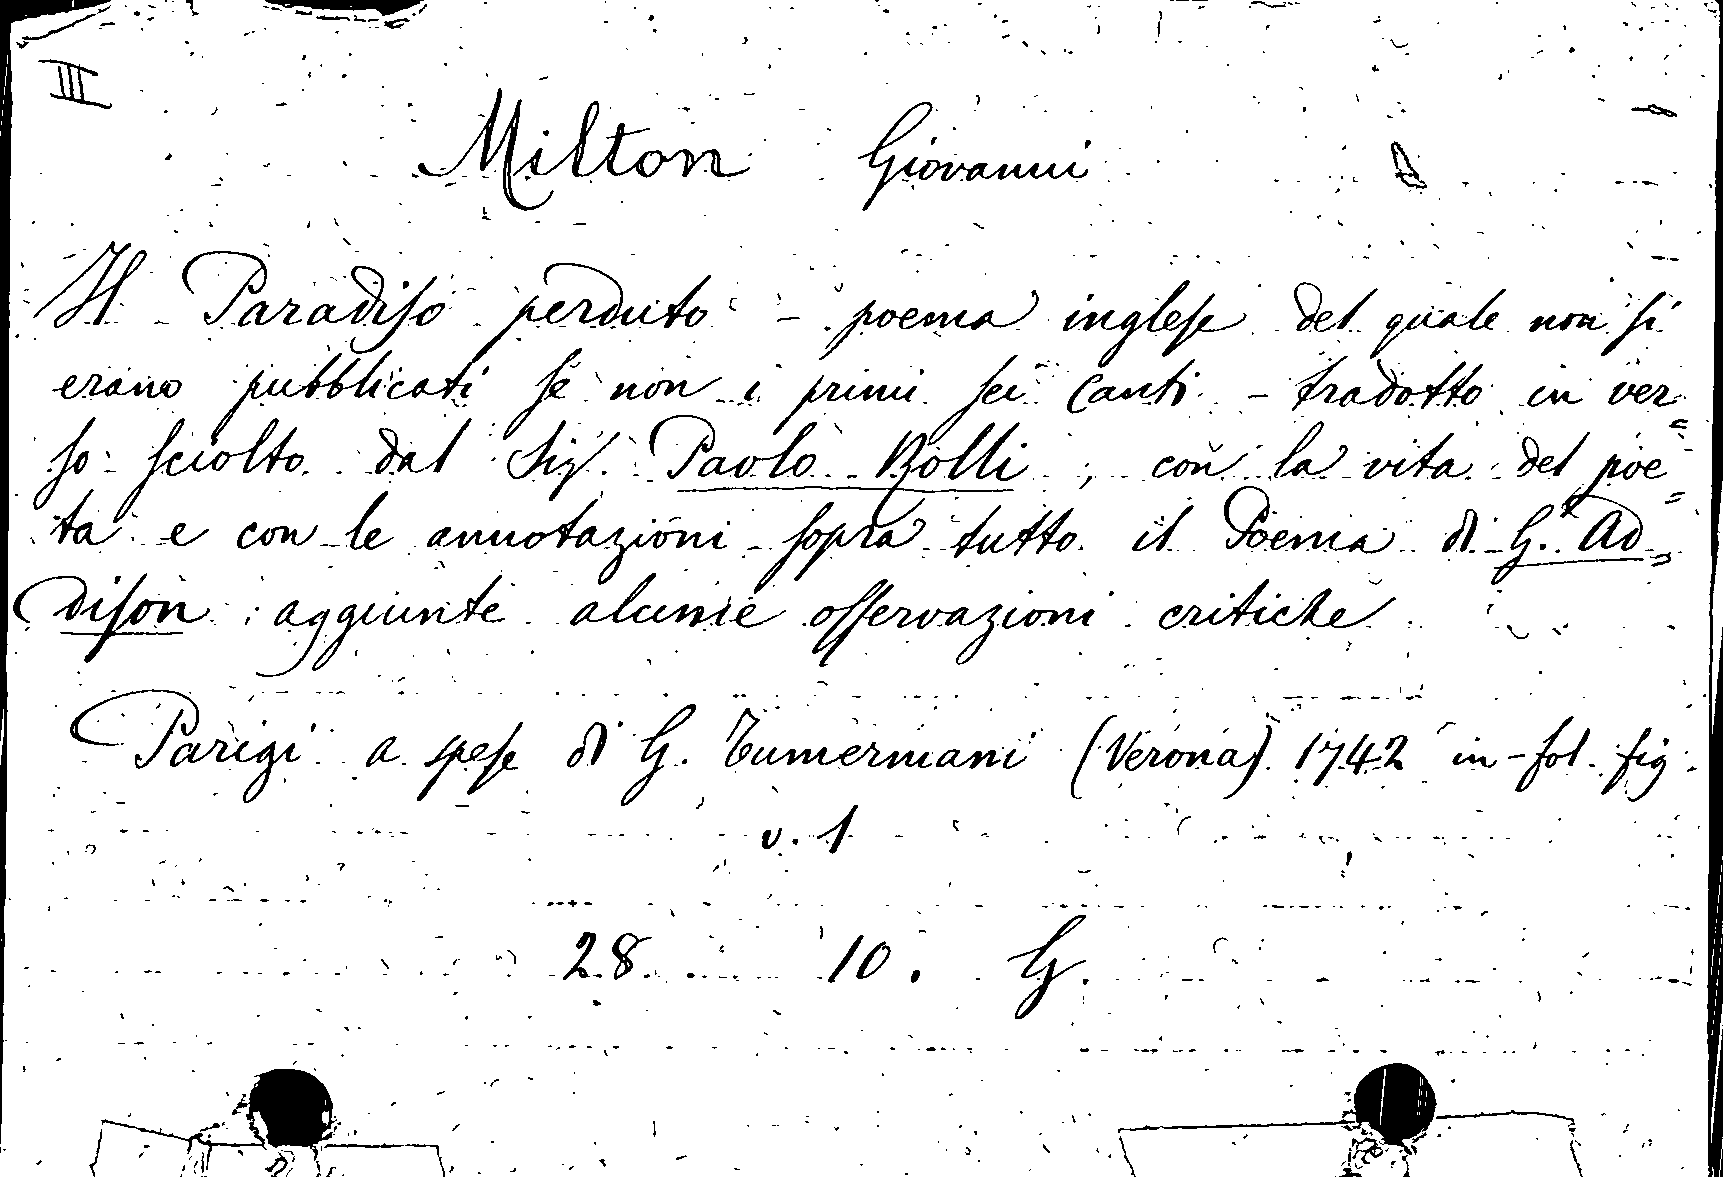 III
Milton Giovanni
Il Paradiso perduto - poema inglese del quale non si
erano pubblicati se non i primi sei Canti - tradotto in ver=
so sciolto dal Sig. Paolo Rolli, con la vita del poe=
ta e con le annotazioni sopra tutto il Poema di G. Ad=
dison; aggiunte alcune osservazioni critiche
Parigi a spese di G. Tumermani (Verona) 1742 in-fol. fig.
v. 1
28 10. G.